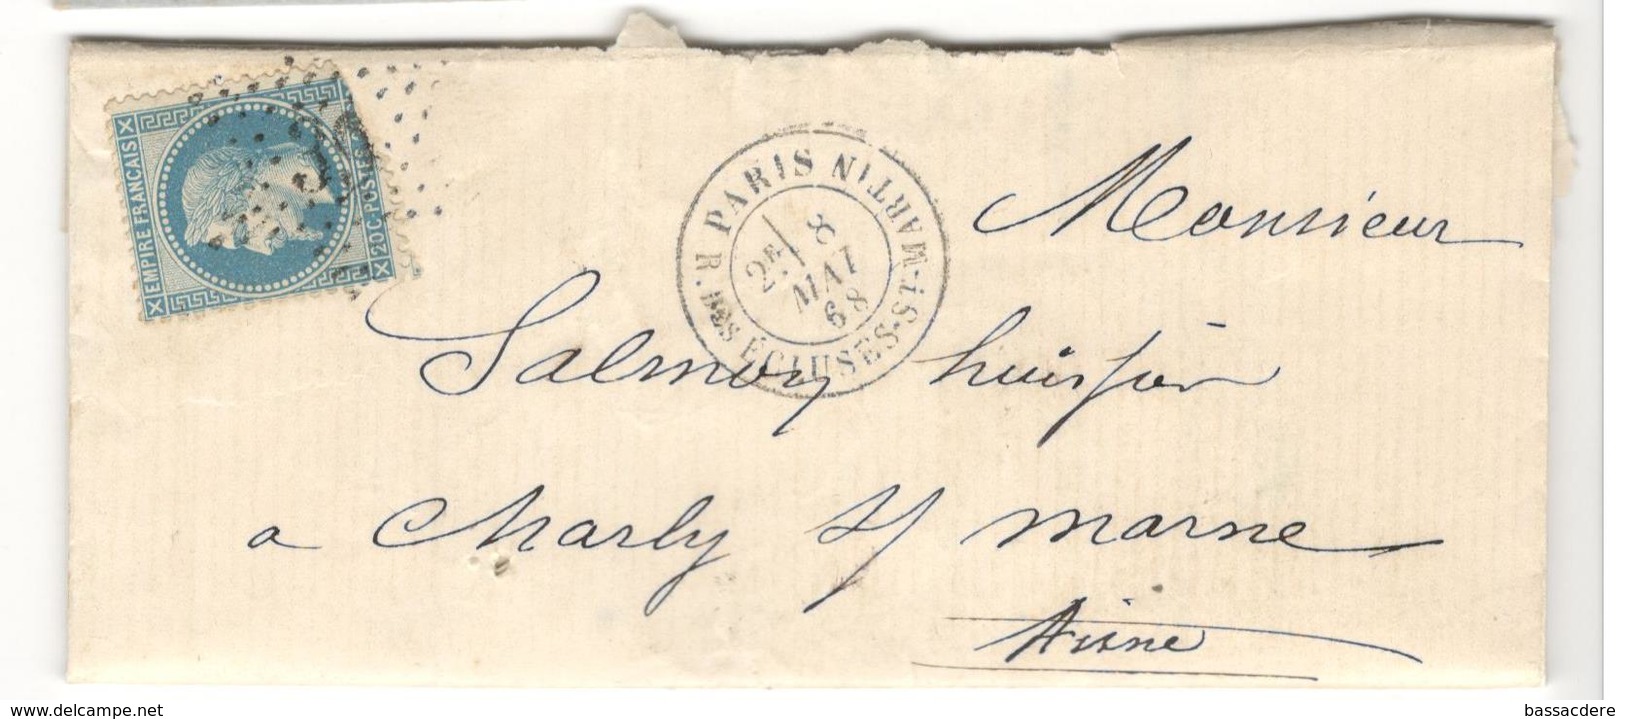 EMPIRE FRANCAIS
20C. POSTES
PARIS
R. DES ÉCLUSES-ST-MARTIN
2E
8
MAI
68
Monsieur
Salmon huissier
a Charly s/ marne
Aisne
www.delcampe.net
bassacdere